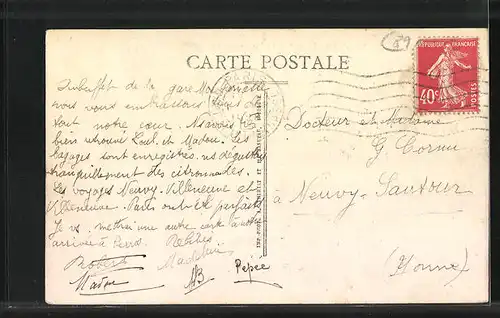 CARTE POSTALE
RÉPUBLIQUE FRANÇAISE
40c
POSTES
PARIS
Au buffet de la gare
vous vous embrassons tous de
tout notre cœur. Ns avons
bien retrouvé Loul. et Madou. Les
bagages sont enregistrés. ns dégustons
tranquillement des citronnades.
Les voyages Neuvy. Villeneuve et
Villeneuve. Paris ont été parfaits
Je vs. mettrai une autre carte à notre
arrivée à
Robert
Madou
AB
Pepée
Docteur et Madame
G Cornu
à Neuvy-Sautour
(Yonne)